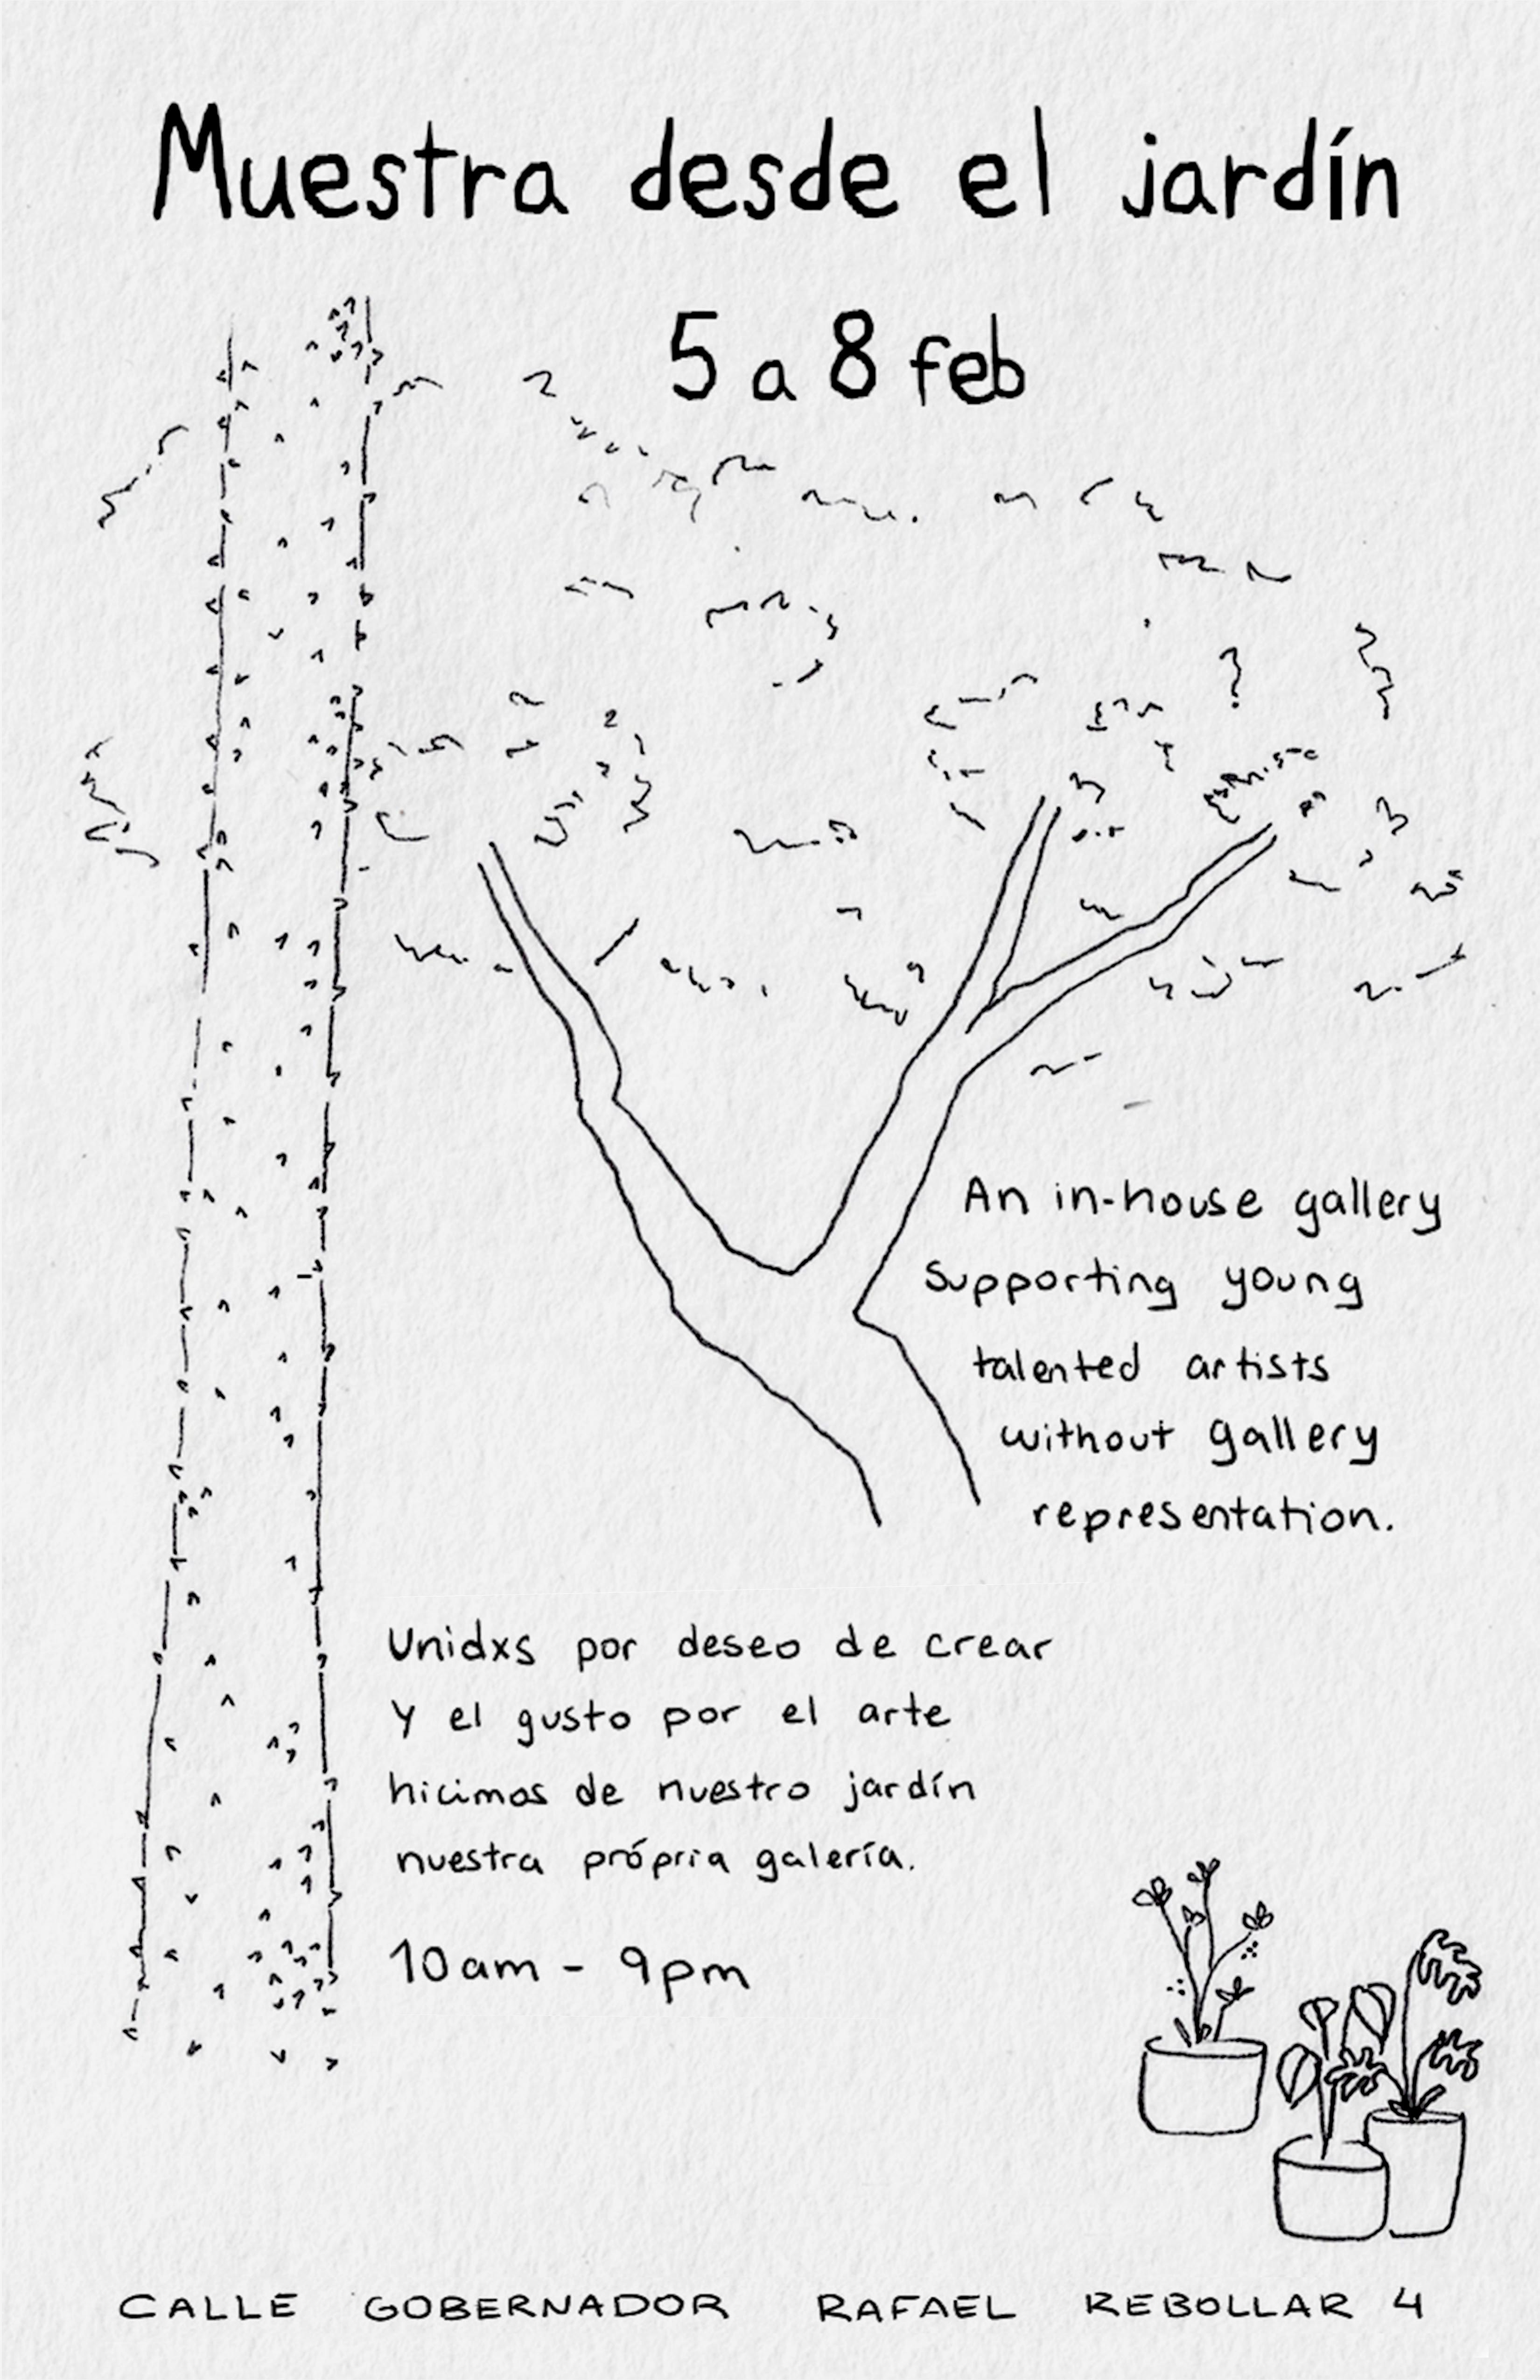 Muestra desde el jardín
5 a 8 feb
An in-house gallery
supporting young
talented artists
without gallery
representation.
Unidxs por deseo de crear
y el gusto por el arte
hicimos de nuestro jardín
nuestra própria galería.
10am - 9pm
CALLE GOBERNADOR RAFAEL REBOLLAR 4